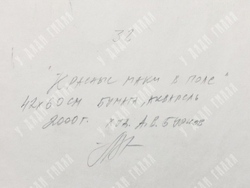 38
"Красные маки в поле"
42х60 см бумага, акварель
2000г. худ. А.В.